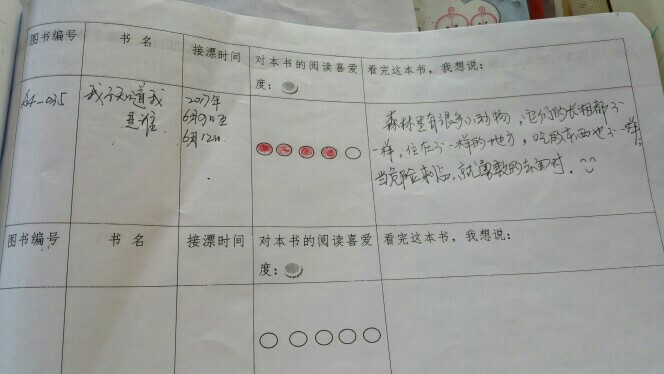 图书编号 书 名 接漂时间 对本书的阅读喜爱度： 看完这本书，我想说：
44-035 我不知道我是谁 2017年6月9日至6月12日
森林里有很多小动物，它们的长相都不
一样，住在不一样的地方，吃的东西也不一样。
当危险来临，就勇敢的去面对。
图书编号 书 名 接漂时间 对本书的阅读喜爱度： 看完这本书，我想说：